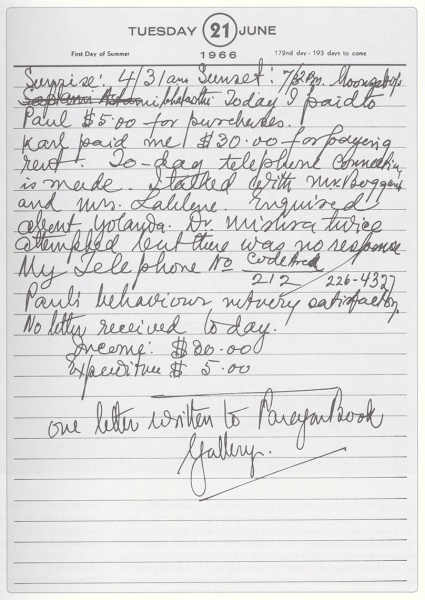 TUESDAY 21 JUNE
First Day of Summer 1966 172nd day - 193 days to come
Surprise: 4/31 am Sunset: 7/32 P.m.
Today I paid to
Paul $5.00 for purchases.
Karl paid me $20.00 for paying
rent. To-day telephone connection
is made. I talked with Mr. Boggart
and Mrs. Enquired
about Yolanda. Dr. Mishra twice
attempted but there was no response
My Telephone No Code Area
212 226-4327
Paul's behaviour not very satisfactory.
No letter received today.
Income: $20.00
Expenditure $ 5.00
one letter written to Paragon Book
Gallery.